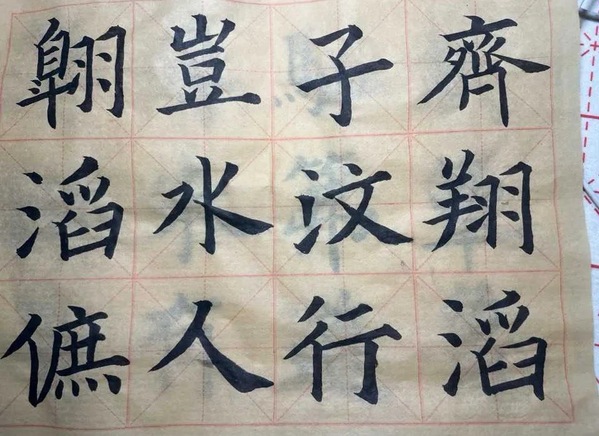 齊子豈翱
翔汶水滔
滔行人